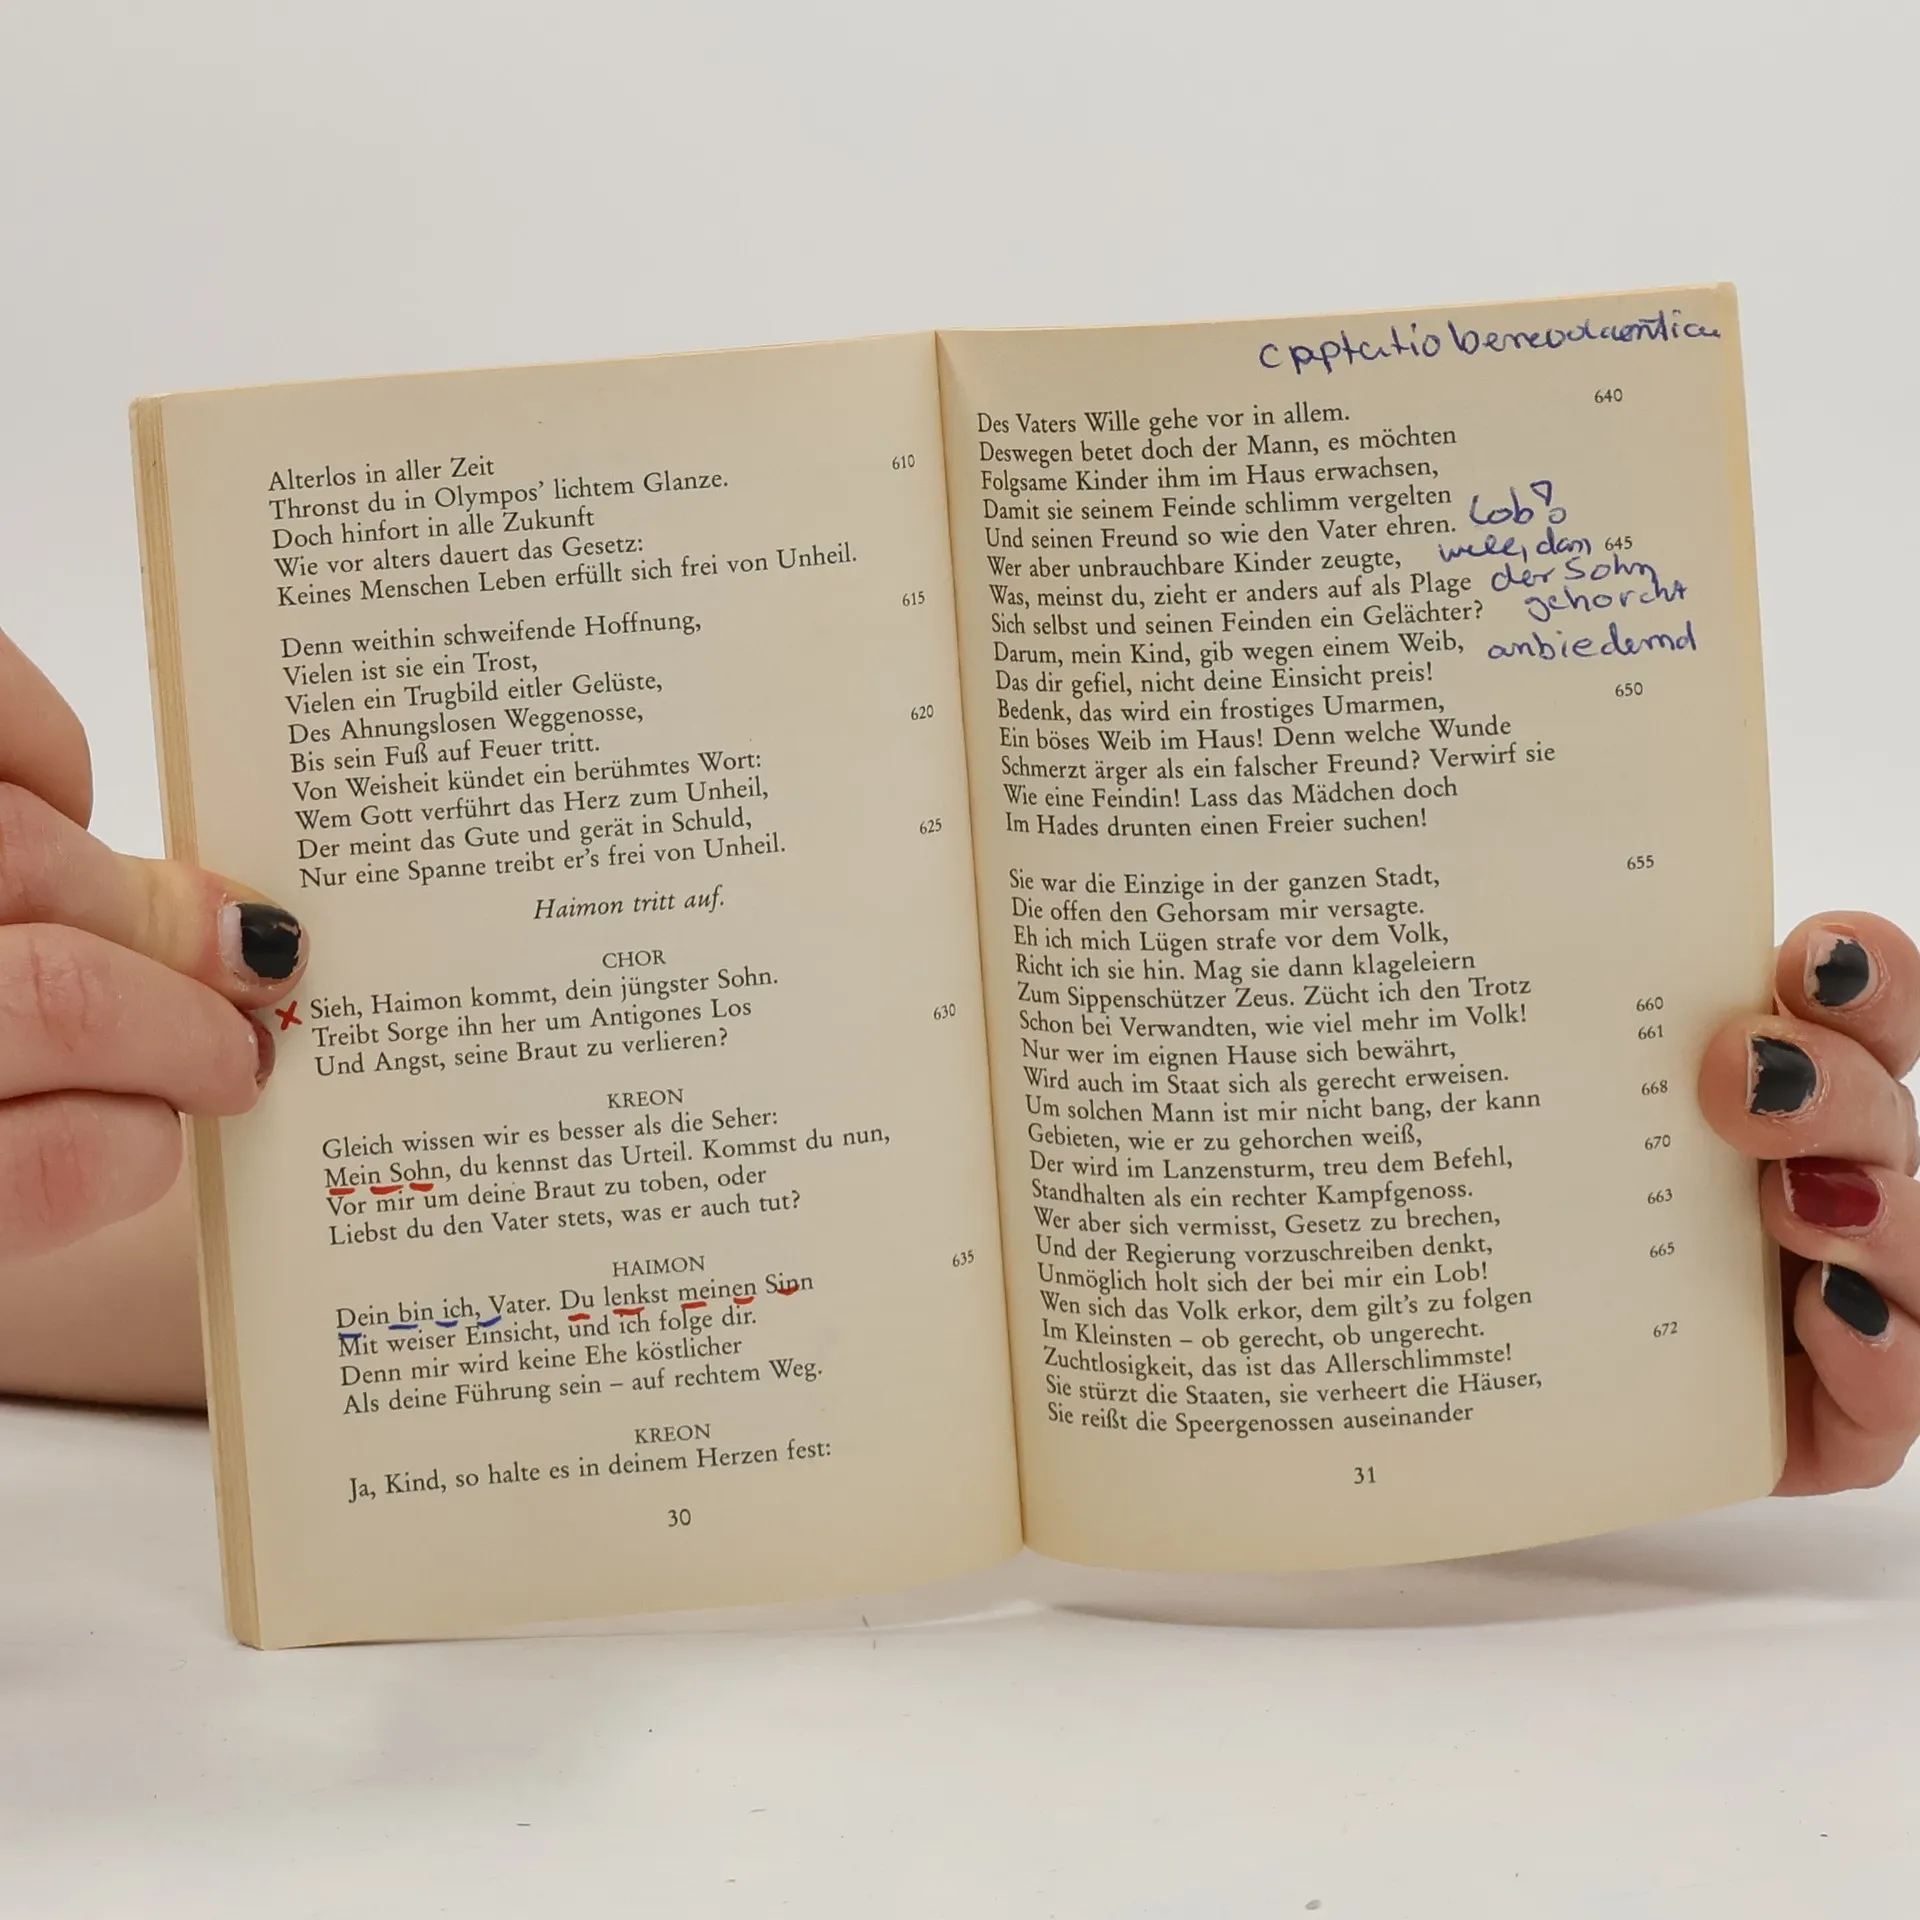 Alterlos in aller Zeit
Thronst du in Olympos’ lichtem Glanze. 610
Doch hinfort in alle Zukunft
Wie vor alters dauert das Gesetz:
Keines Menschen Leben erfüllt sich frei von Unheil.
Denn weithin schweifende Hoffnung, 615
Vielen ist sie ein Trost,
Vielen ein Trugbild eitler Gelüste,
Des Ahnungslosen Weggenosse,
Bis sein Fuß auf Feuer tritt. 620
Von Weisheit kündet ein berühmtes Wort:
Wem Gott verführt das Herz zum Unheil,
Der meint das Gute und gerät in Schuld,
Nur eine Spanne treibt er’s frei von Unheil. 625
Haimon tritt auf.
CHOR
x Sieh, Haimon kommt, dein jüngster Sohn.
Treibt Sorge ihn her um Antigones Los
Und Angst, seine Braut zu verlieren? 630
KREON
Gleich wissen wir es besser als die Seher:
Mein Sohn, du kennst das Urteil. Kommst du nun,
Vor mir um deine Braut zu toben, oder
Liebst du den Vater stets, was er auch tut?
HAIMON
Dein bin ich, Vater. Du lenkst meinen Sinn 635
Mit weiser Einsicht, und ich folge dir.
Denn mir wird keine Ehe köstlicher
Als deine Führung sein – auf rechtem Weg.
KREON
Ja, Kind, so halte es in deinem Herzen fest:
30
captatio
Des Vaters Wille gehe vor in allem. 640
Deswegen betet doch der Mann, es möchten
Folgsame Kinder ihm im Haus erwachsen,
Damit sie seinem Feinde schlimm vergelten
Und seinen Freund so wie den Vater ehren. Lob!
Wer aber unbrauchbare Kinder zeugte, 645
Was, meinst du, zieht er anders auf als Plage der Sohn
Sich selbst und seinen Feinden ein Gelächter? gehorcht
Darum, mein Kind, gib wegen einem Weib, anbiedernd
Das dir gefiel, nicht deine Einsicht preis!
Bedenk, das wird ein frostiges Umarmen, 650
Ein böses Weib im Haus! Denn welche Wunde
Schmerzt ärger als ein falscher Freund? Verwirf sie
Wie eine Feindin! Lass das Mädchen doch
Im Hades drunten einen Freier suchen!
Sie war die Einzige in der ganzen Stadt, 655
Die offen den Gehorsam mir versagte.
Eh ich mich Lügen strafe vor dem Volk,
Richt ich sie hin. Mag sie dann klageleiern
Zum Sippenschützer Zeus. Zücht ich den Trotz
Schon bei Verwandten, wie viel mehr im Volk! 660
Nur wer im eignen Hause sich bewährt, 661
Wird auch im Staat sich als gerecht erweisen.
Um solchen Mann ist mir nicht bang, der kann 668
Gebieten, wie er zu gehorchen weiß,
Der wird im Lanzensturm, treu dem Befehl, 670
Standhalten als ein rechter Kampfgenoss.
Wer aber sich vermisst, Gesetz zu brechen, 663
Und der Regierung vorzuschreiben denkt,
Unmöglich holt sich der bei mir ein Lob! 665
Wen sich das Volk erkor, dem gilt’s zu folgen
Im Kleinsten – ob gerecht, ob ungerecht.
Zuchtlosigkeit, das ist das Allerschlimmste! 672
Sie stürzt die Staaten, sie verheert die Häuser,
Sie reißt die Speergenossen auseinander
31